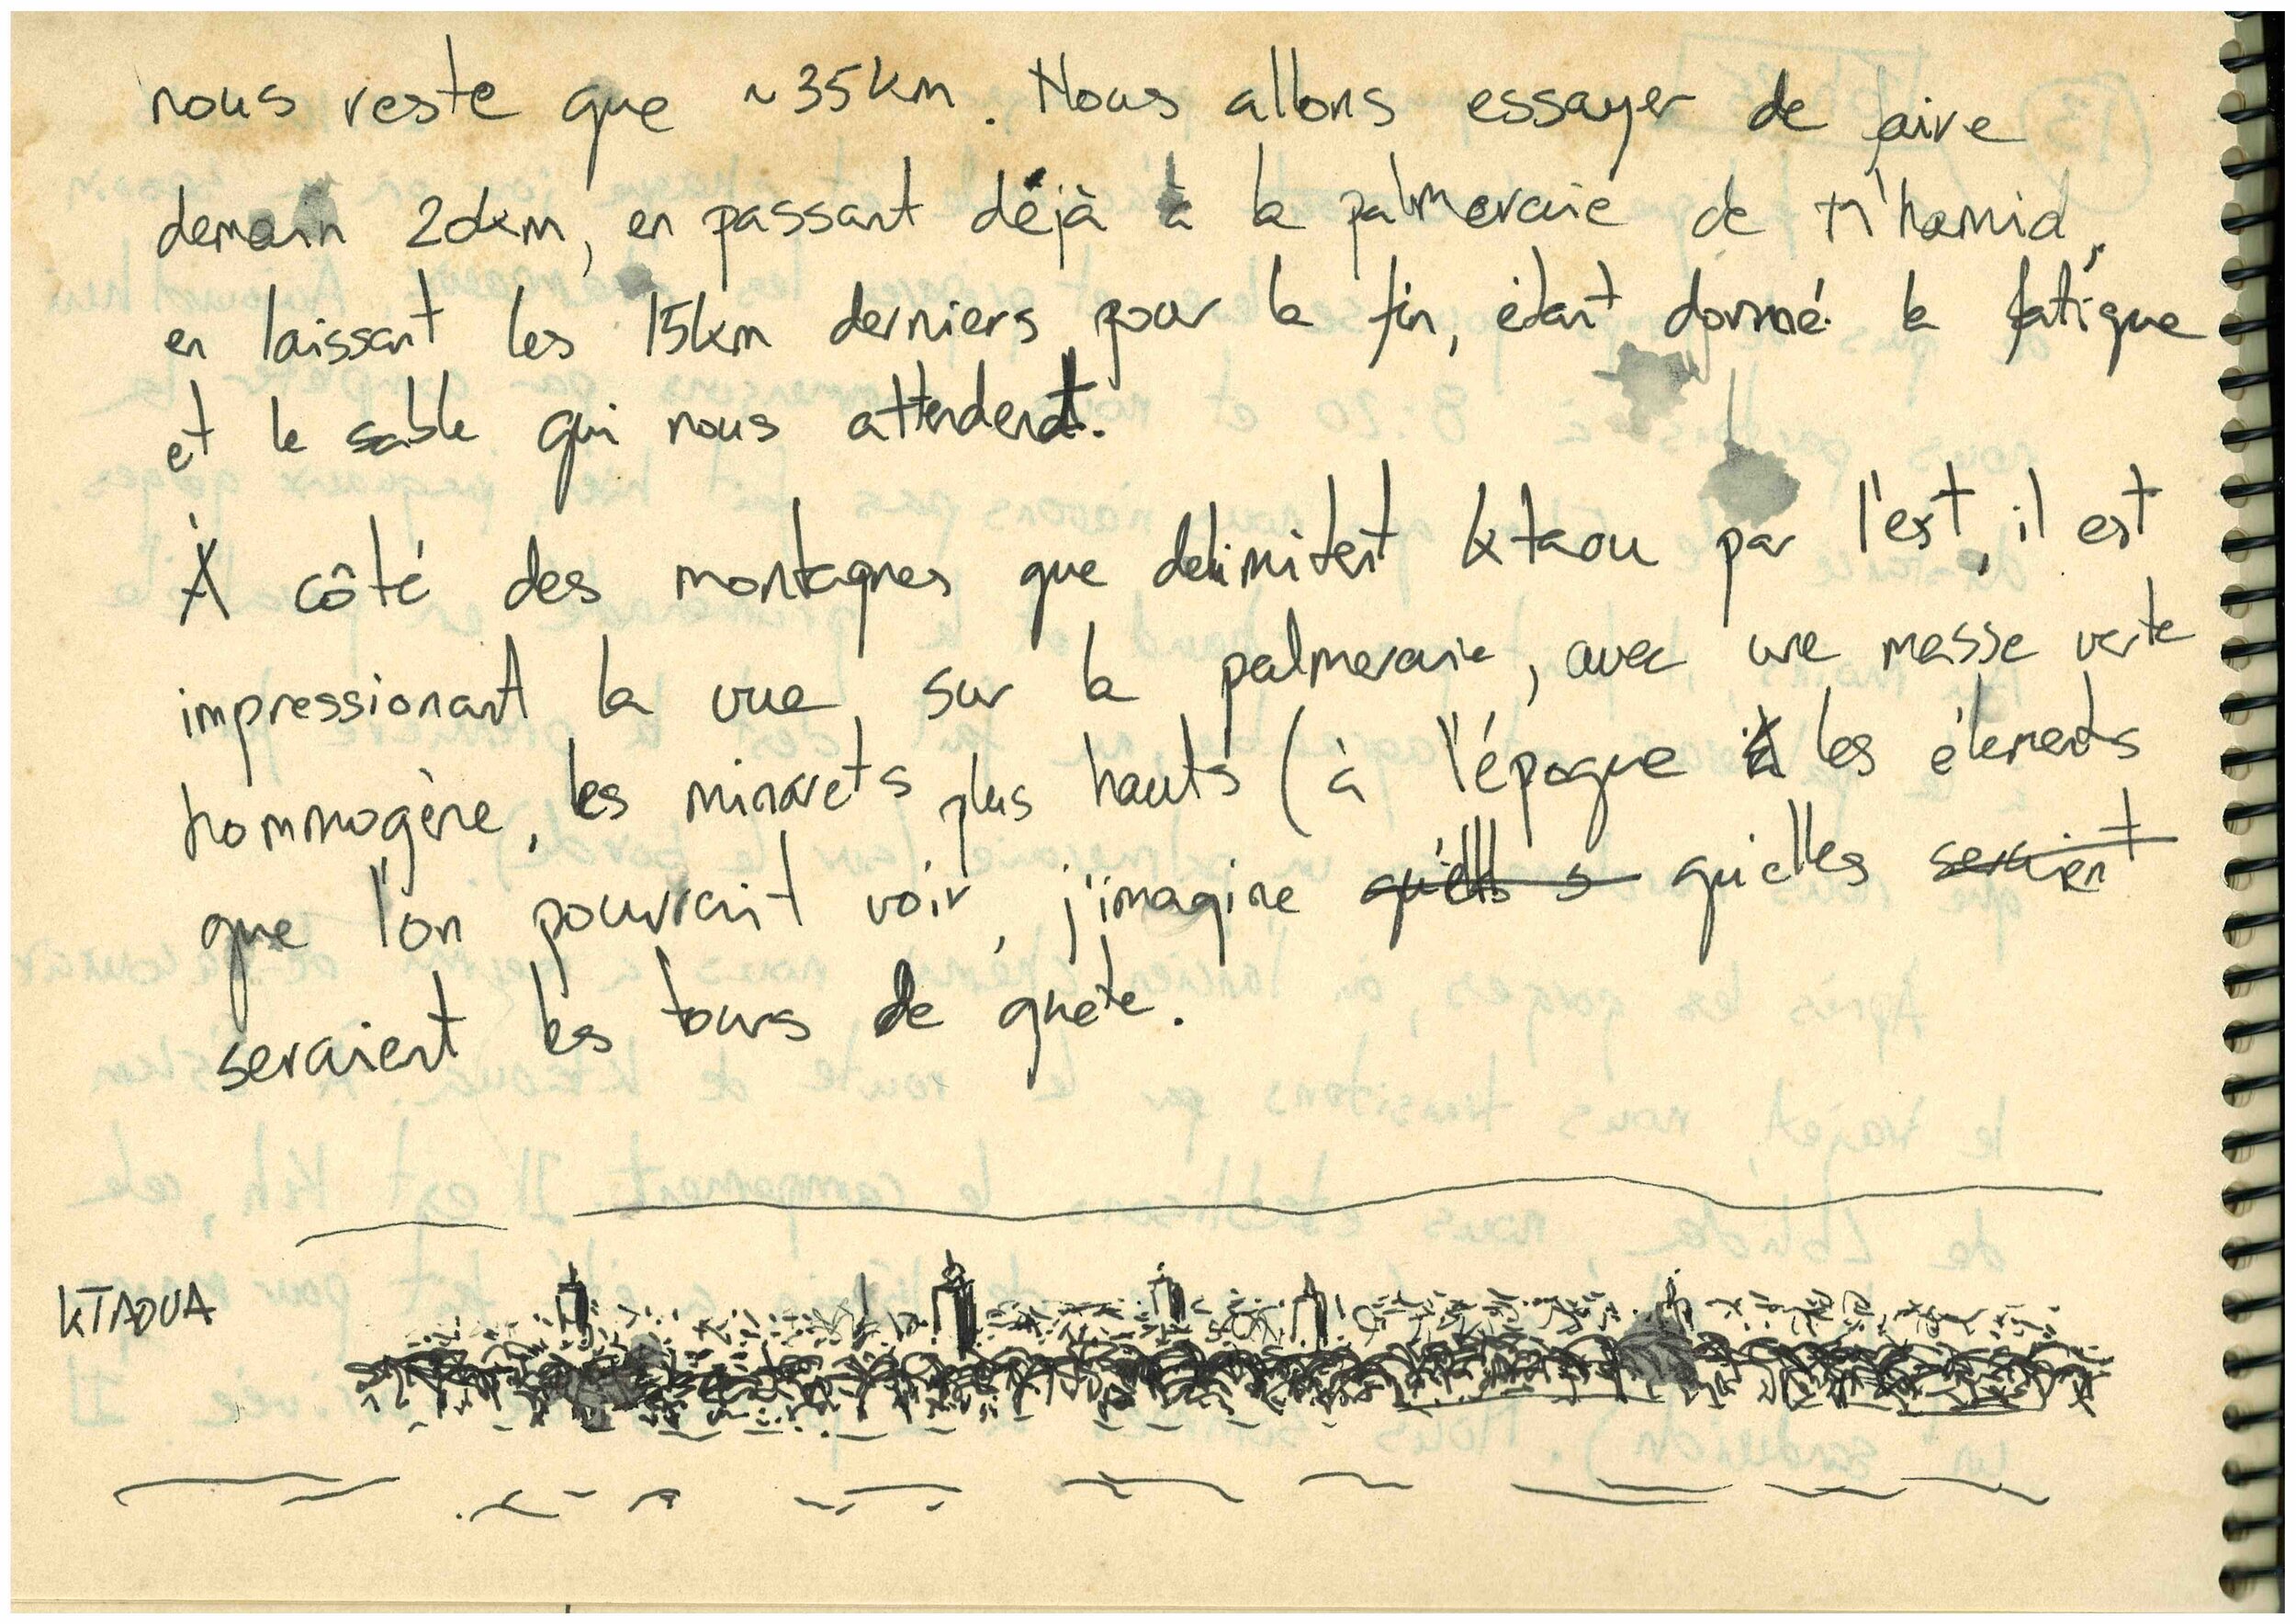 nous reste que ~35km. Nous allons essayer de faire
demain 20km, en passant déjà à la palmeraie de M'hamid,
en laissant les 15km derniers pour la fin, étant donné la fatigue
et le sable qui nous attendent.
À côté des montagnes que delimitent Ktaou par l'est, il est
impressionant la vue sur la palmeraie, avec une masse verte
hommogène, les minarets plus hauts (à l'époque les élements
que l'on pourrait voir, j'imagine qu'elles seraient
seraient les tours de guete.
KTAOUA